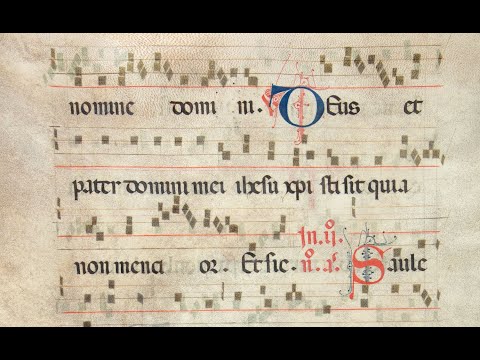 nomine domi ni. Deus et
pater domini mei ihesu xpi sit quia
In .ij.
non menci or. Et sic. Saule